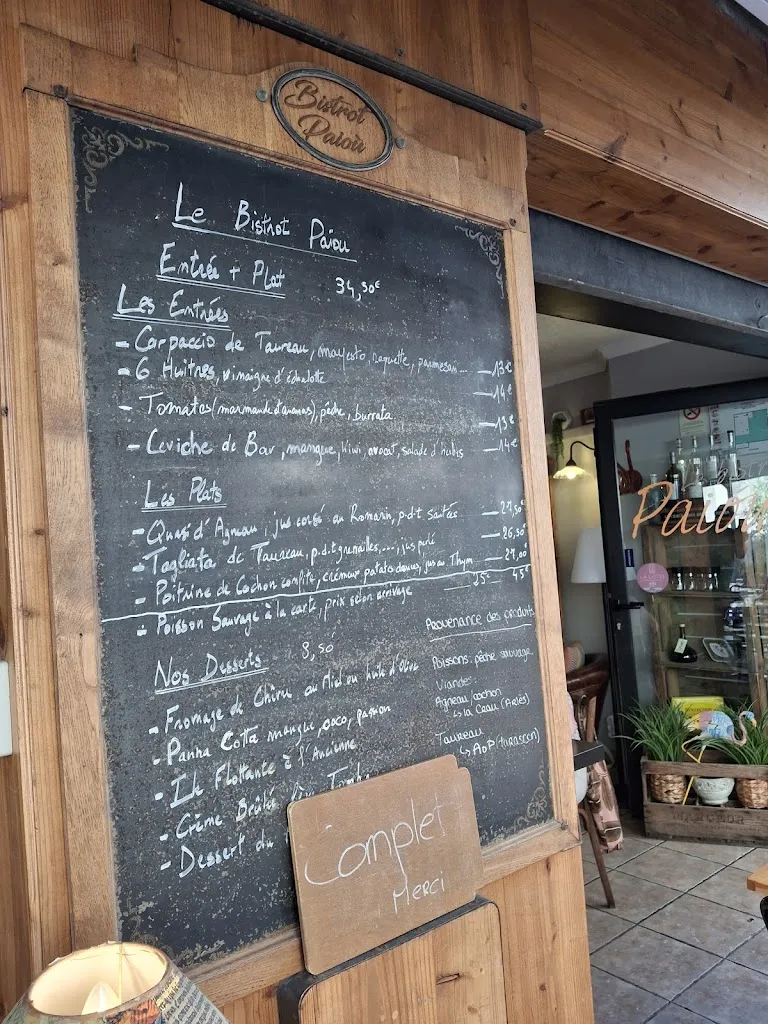 Bistrot
Paiou
Le Bistrot Paiou
Entrée + Plat 34,50€
Les Entrées
- Carpaccio de Taureau, mayesto, roquette, parmesan... — 13€
- 6 Huitres, vinaigre d'échalotte — 14€
- Tomates (marmande d'ananas), pêche, burrata — 13€
- Ceviche de Bar, mangue, kiwi, avocat, salade d'herbes — 14€
Les Plats
- Quasi d'Agneau, jus corsé au Romarin, p.d.t sautées — 27,50€
- Tagliata de Taureau, p.d.t grenailles, ..., jus perlé — 26,50€
- Poitrine de Cochon confite, crémeux patate douce, jus au Thym — 27,00€
- Poisson Sauvage à la carte, prix selon arrivage 25€ - 45€
Nos Desserts 8,50
- Fromage de Chèvre au Miel ou huile d'Olive
- Panna Cotta mangue, coco, passion
- Ile Flottante à l'Ancienne
- Crème Brûlée
- Dessert du
Provenance des produits
Poissons: pêche sauvage
Viandes:
Agneau/cochon
↳ la Crau (Arles)
Taureau
↳ AOP (tarascon)
Complet
Merci
Paiou